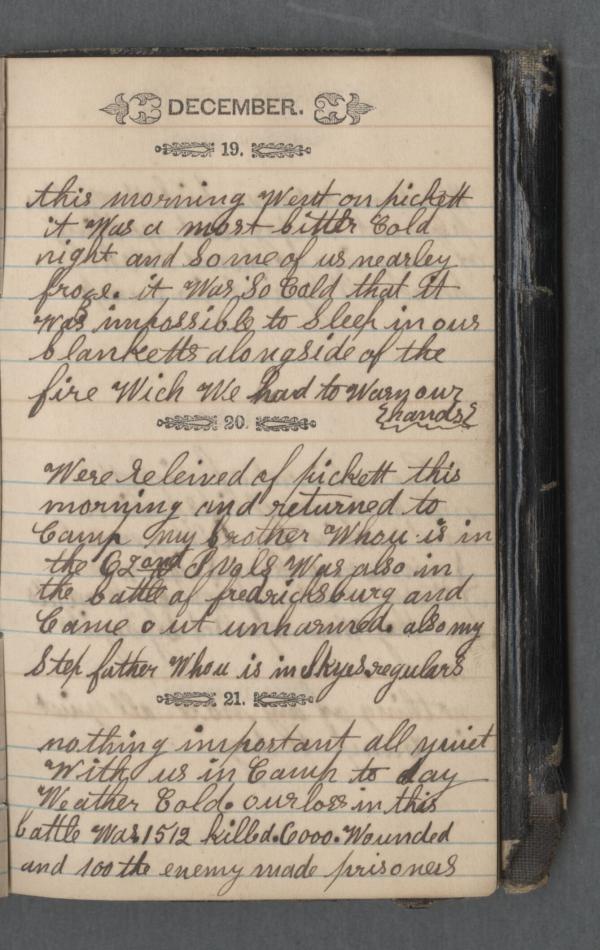 DECEMBER.
19.
this morning Went on pickett
it Was a most bitter Cold
night and Some of us nearley
froze. it Was So Cold that it
Was impossible to Sleep in our
blanketts alongside of the
fire Wich We had to Warn our
hands
20.
Were releived of pickett this
morning and returned to
Camp my brother Whou is in
the 62and P. Vols Was also in
the battle of fredricksburg and
Came out unharmed. also my
Step father Whou is in Skyes regulars
21.
nothing important all quiet
With us in Camp to day
Weather Cold. our loss in this
battle Was 1512 killed. 6000. Wounded
and 100 the enemy made prisoners